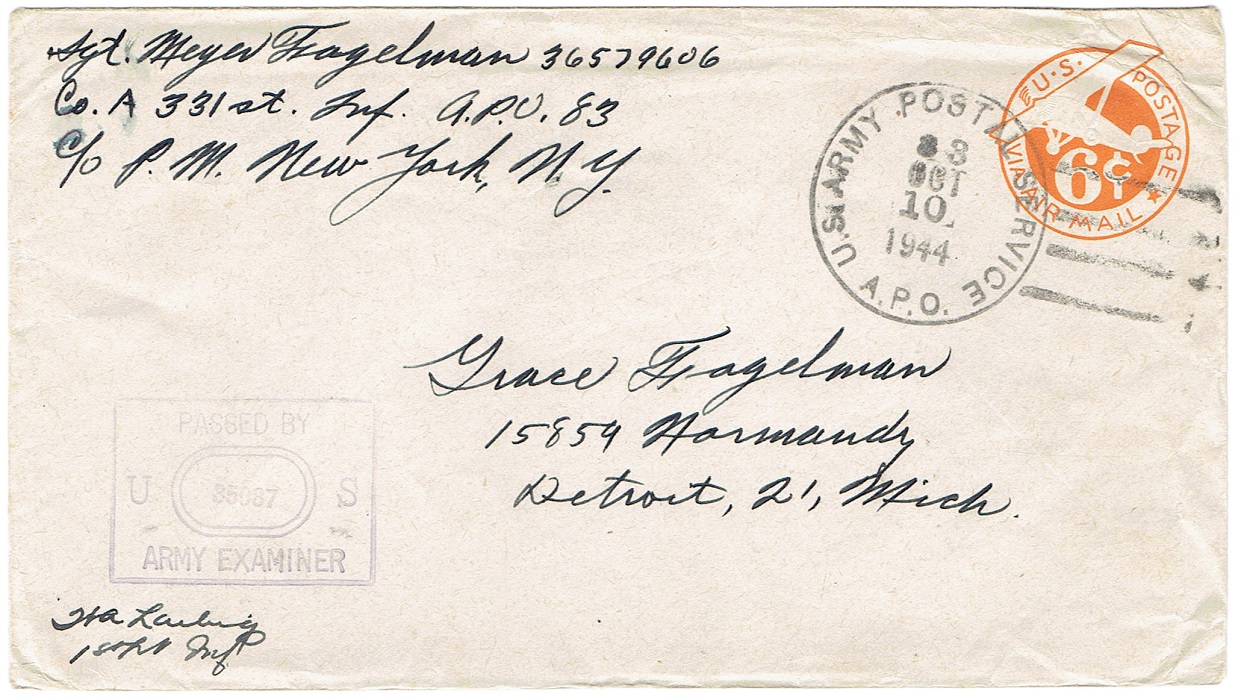 Sgt. Meyer Fogelman 36579606
Co. A 331st. Inf. A.P.O. 83
c/o P.M. New York, N.Y.
U.S. POSTAGE
6¢
VIA AIR MAIL
U.S. ARMY POSTAL SERVICE
OCT
10
1944
A.P.O.
Grace Fogelman
15859 Normandy
Detroit, 21, Mich.
PASSED BY
U 35087 S
ARMY EXAMINER
1st Lt Inf